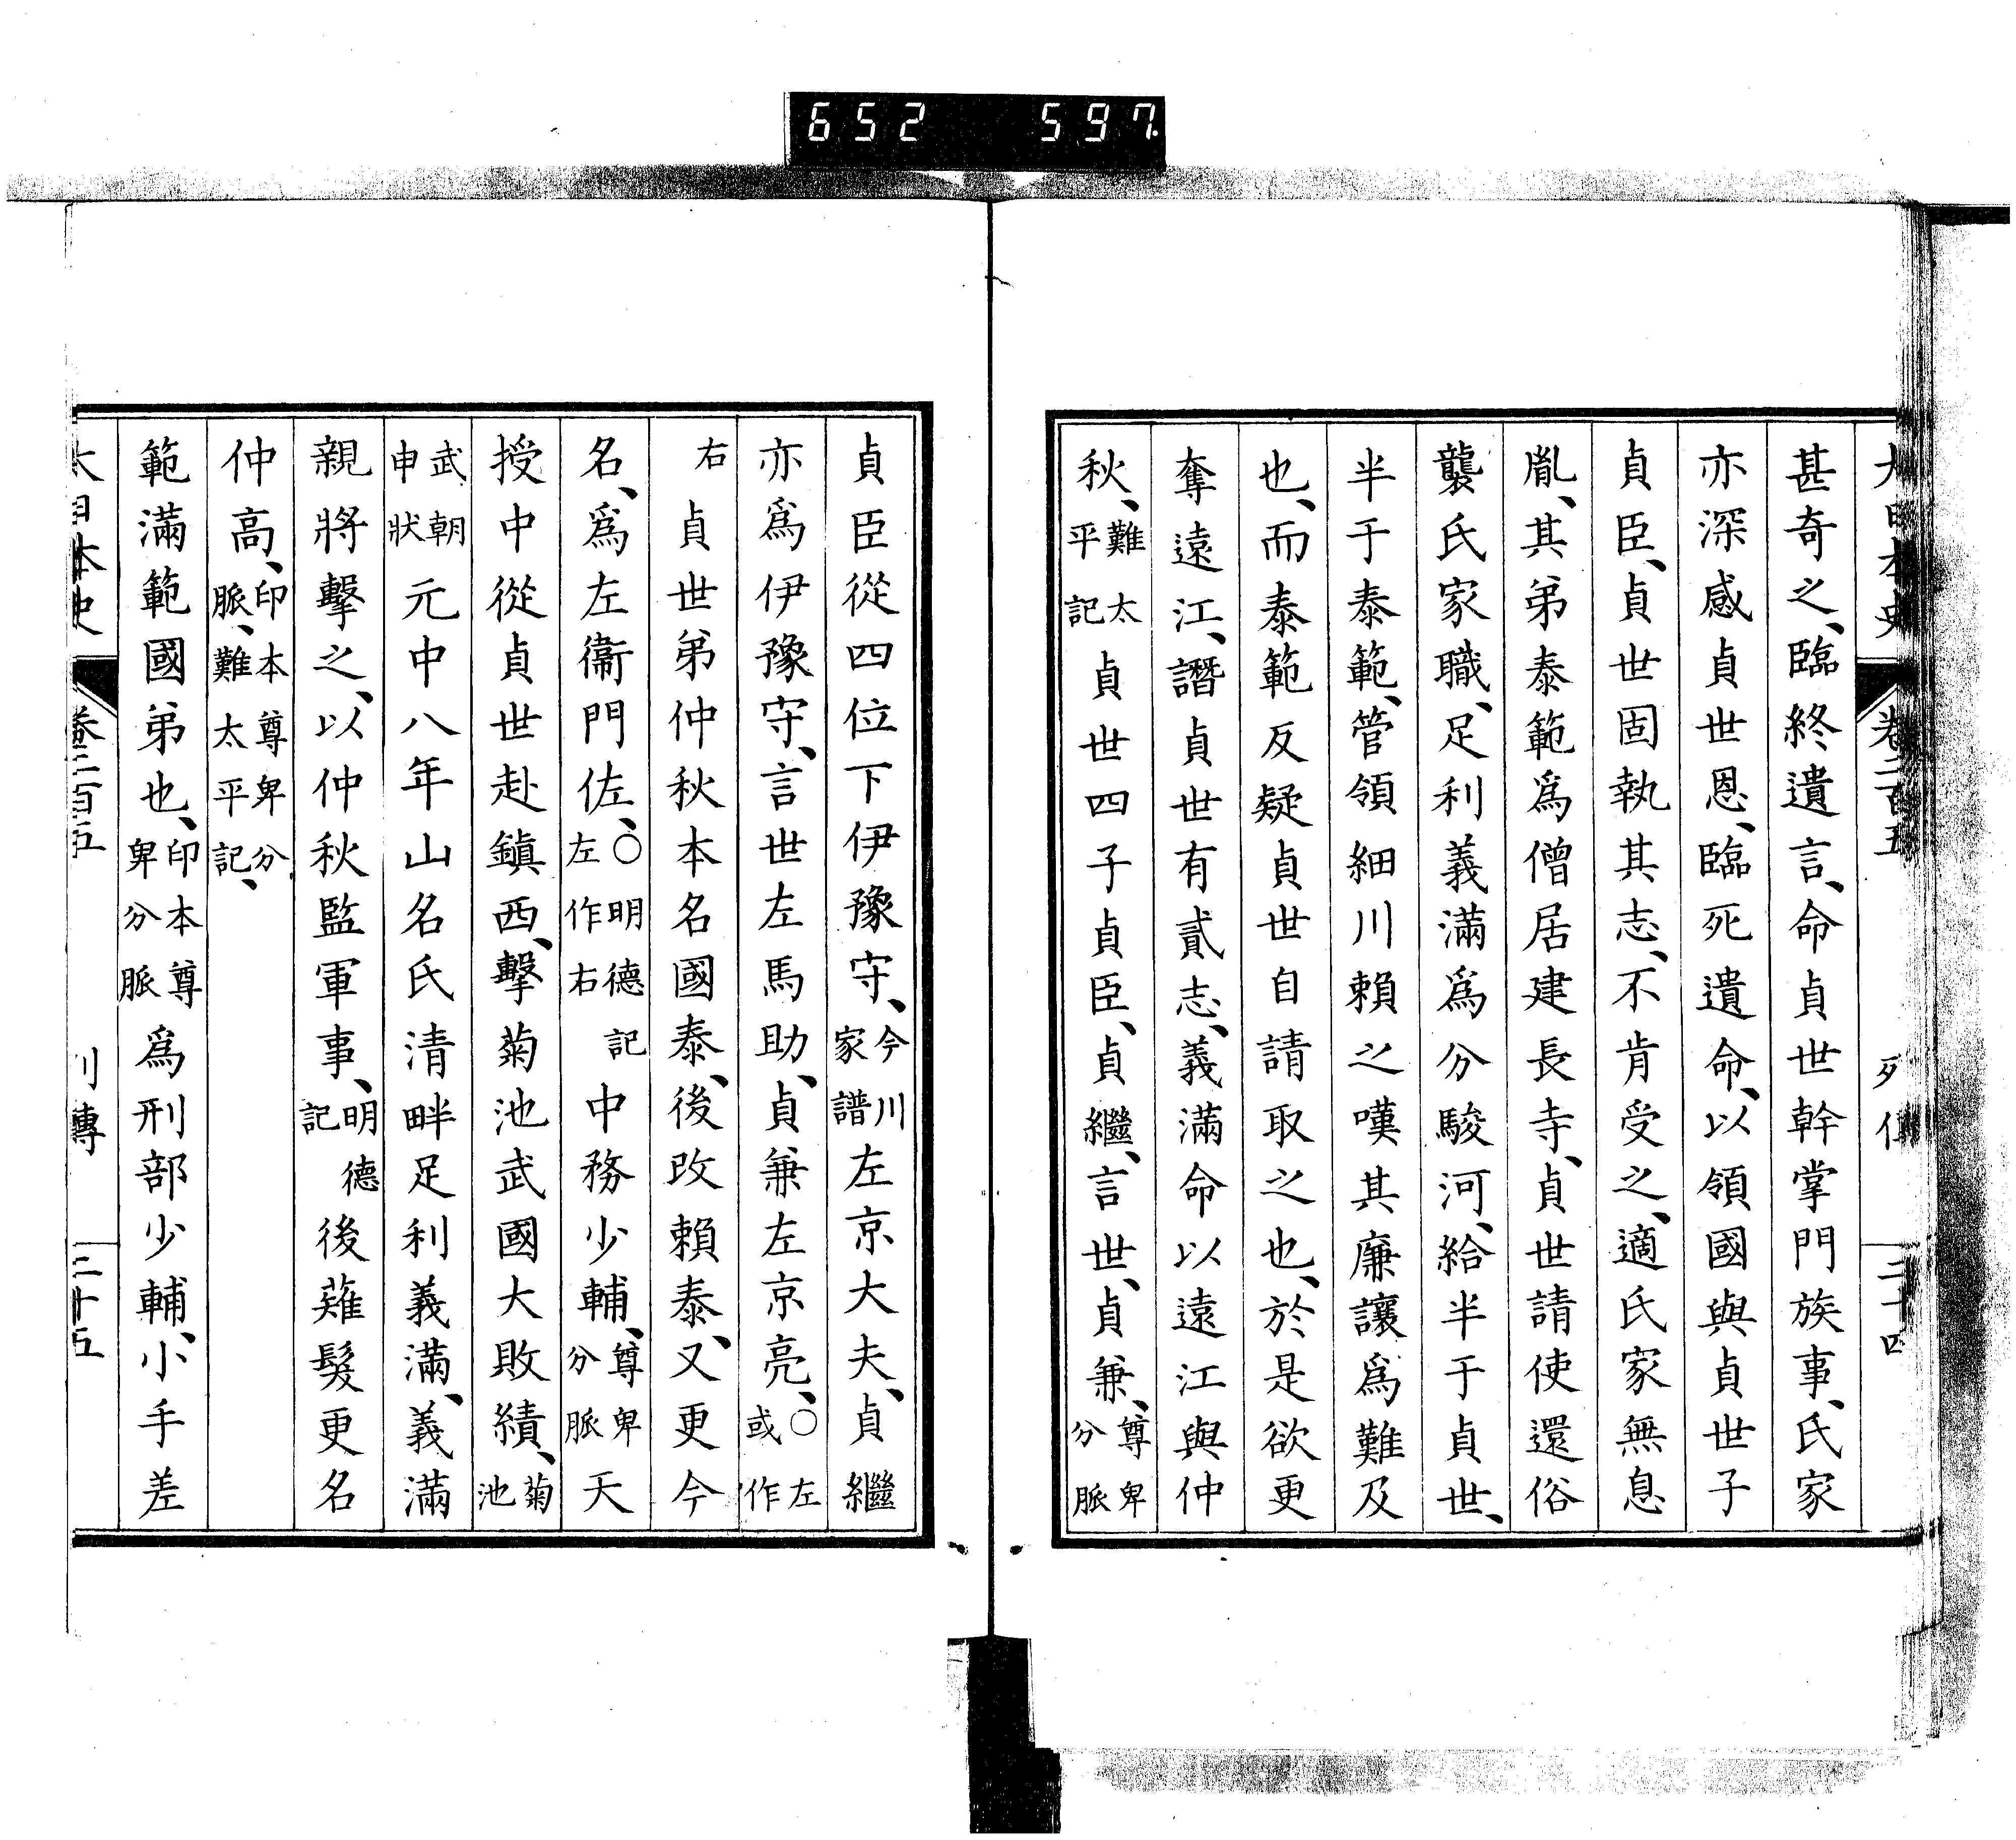 652 597
大日本史 卷二百五 列傳 二十四
甚奇之、臨終遺言、命貞世幹掌門族事、氏家
亦深感貞世恩、臨死遺命、以領國與貞世子
貞臣、貞世固執其志、不肯受之、適氏家無息
胤、其弟泰範爲僧居建長寺、貞世請使還俗
襲氏家職、足利義滿爲分駿河、給半于貞世、
半于泰範、管領細川賴之嘆其廉讓爲難及
也、而泰範反疑貞世自請取之也、於是欲更
奪遠江、譖貞世有貳志、義滿命以遠江與仲
秋、難太平記貞世四子貞臣、貞繼、言世、貞兼、尊卑分脈
貞臣從四位下伊豫守、今川家譜左京大夫、貞繼
亦爲伊豫守、言世左馬助、貞兼左京亮、○左或作
右貞世弟仲秋本名國泰、後改賴泰、又更今
名、爲左衞門佐、○明德記左作右中務少輔、尊卑分脈天
授中從貞世赴鎭西、擊菊池武國大敗績、菊池
武朝申狀元中八年山名氏清畔足利義滿、義滿
親將擊之、以仲秋監軍事、明德記後薙髮更名
仲高、印本尊卑分脈、難太平記、
範滿範國弟也、印本尊卑分脈爲刑部少輔、小手差
大日本史 卷二百五 列傳 二十五